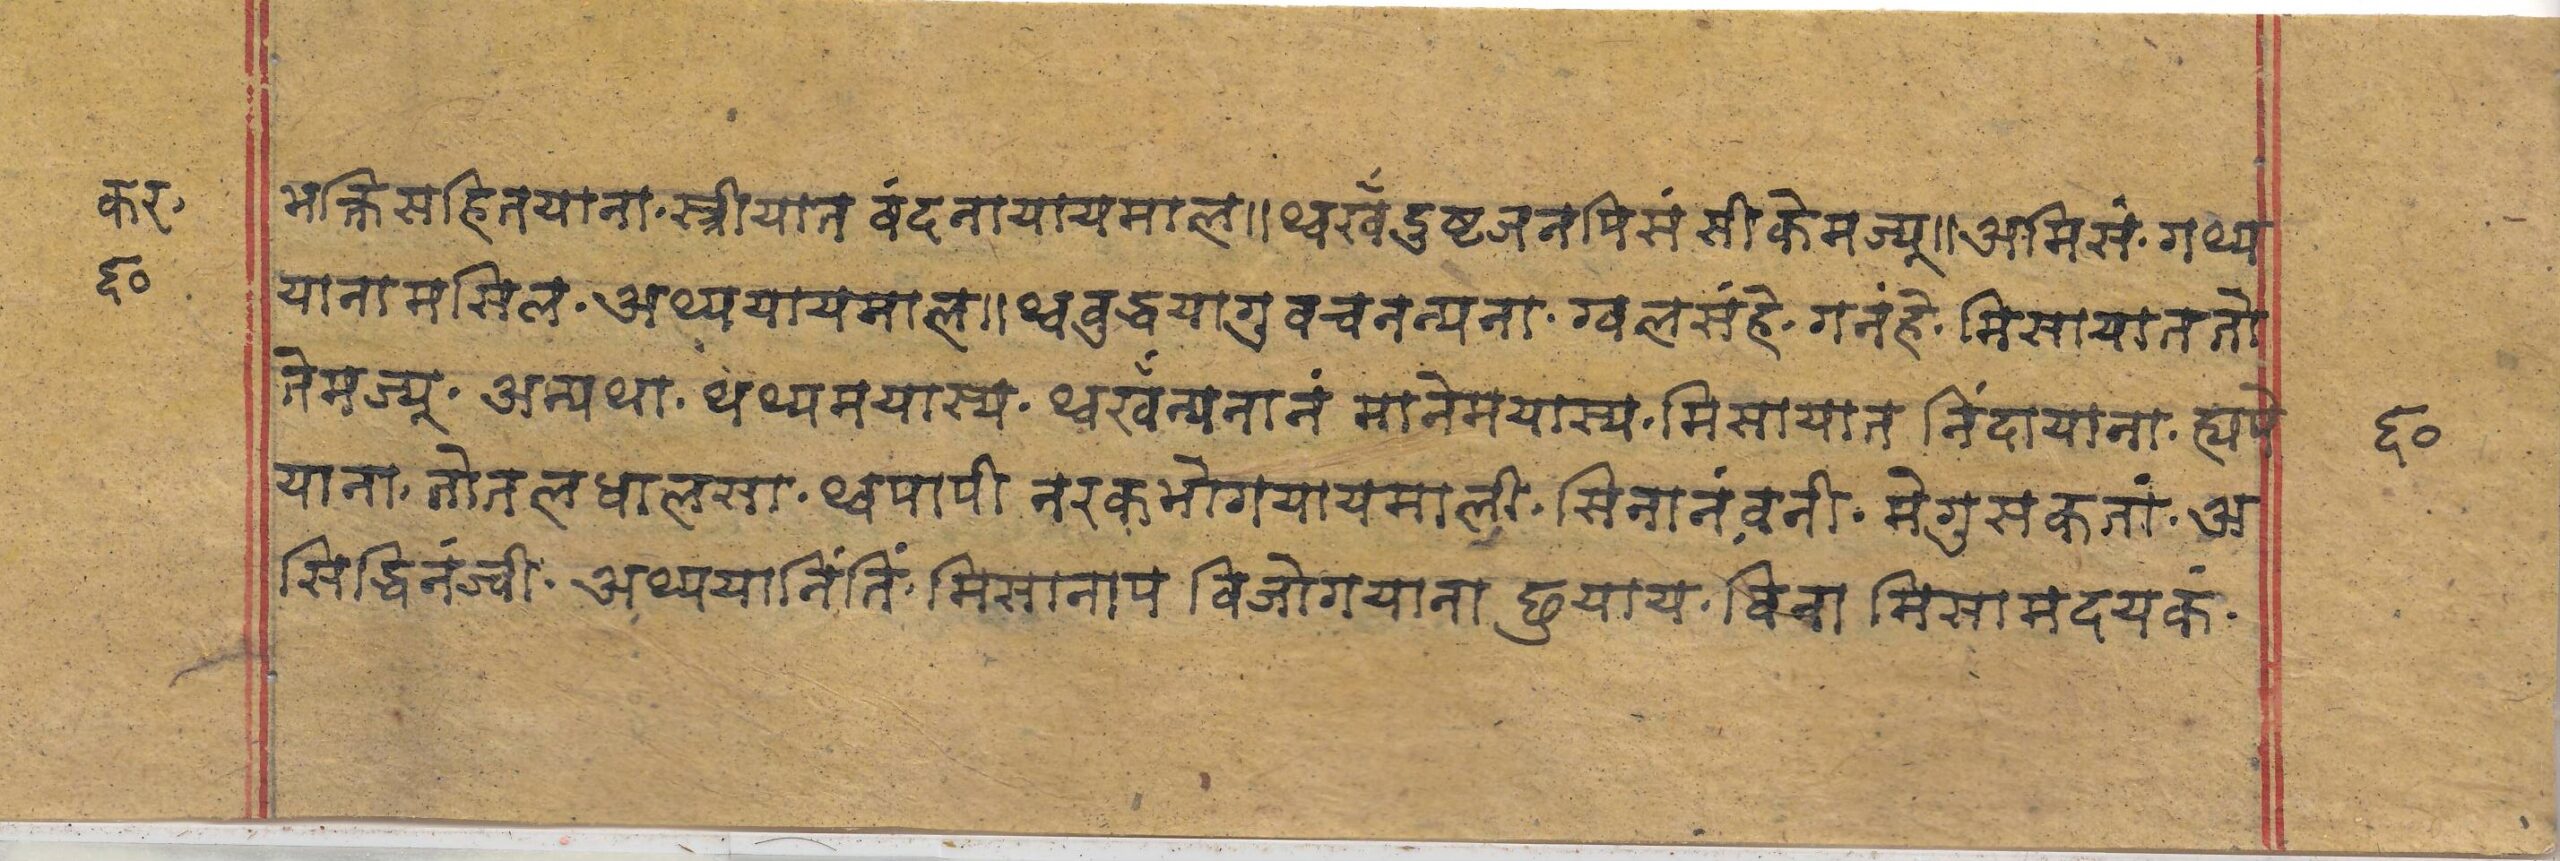 कर॰
भक्तिसहितयाना॰स्त्रीयात वंदनायायमाल॥थ्वखँदुष्टजनपिसं सीकेमज्यू॥अमिसं॰गथ्य
६०
यानामसिल॰अथ्ययायमाल॥थ्ववुद्धयागुवचनन्यना॰ग्वलसंहे॰गनंहे॰मिसायाततो
तेमज्यू॰अन्यथा॰थथ्यमयास्य॰थ्वखँन्यनानं मानेमयास्य॰मिसायात निंदायाना॰ह्यपे
६०
याना॰तोतलधालसा॰थ्वपापी नरकभोगयायमाली॰सिनानंवनी॰मेगुसकतां॰अ
सिद्धिनंज्वी॰अथ्ययानिंतिं॰मिसानाप विजोगयाना छुयाय॰विना मिसामदयकं॰